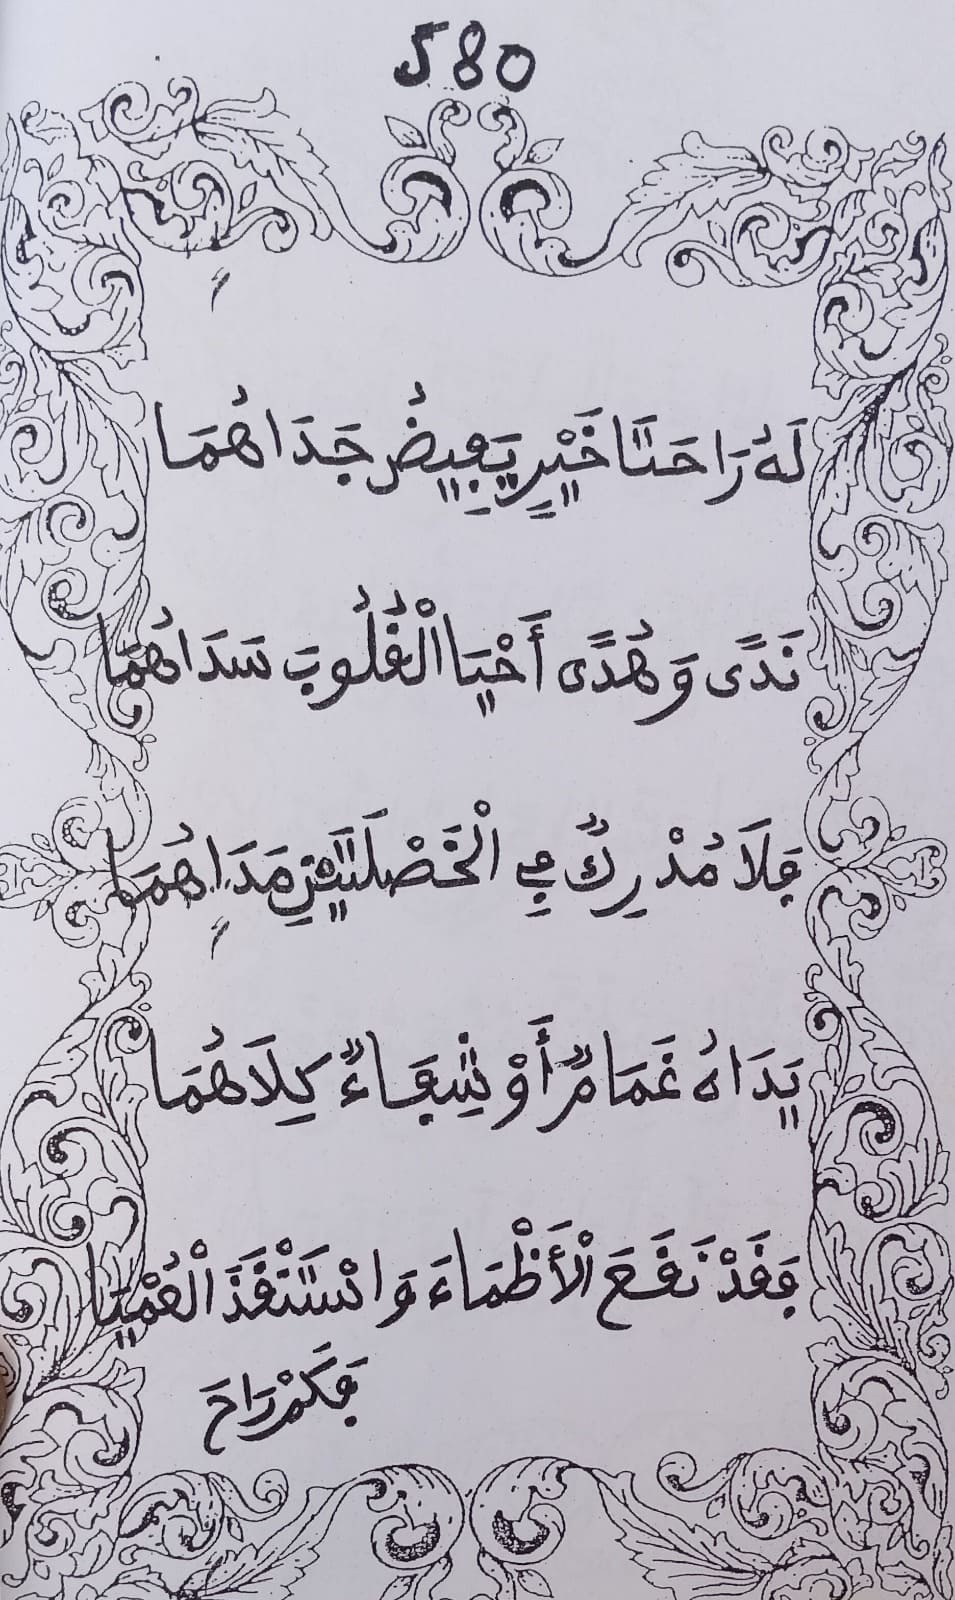 580
لَهُ رَاحَتَا خَيْرٍ يَفِيضُ جَدَاهُمَا
نَدًى وَهُدًى أَحْيَا الْقُلُوبَ سَدَاهُمَا
فَلَا مُدْرِكٌ فِي الْخَصْلَتَيْنِ مَدَاهُمَا
يَدَاهُ غَمَامٌ أَوْ شِفَاءٌ كِلَاهُمَا
فَقَدْ نَقَعَ الْأَظْمَاءَ وَاسْتَنْقَذَ الْعُمْيَا
فَكَمْ رَاحَ